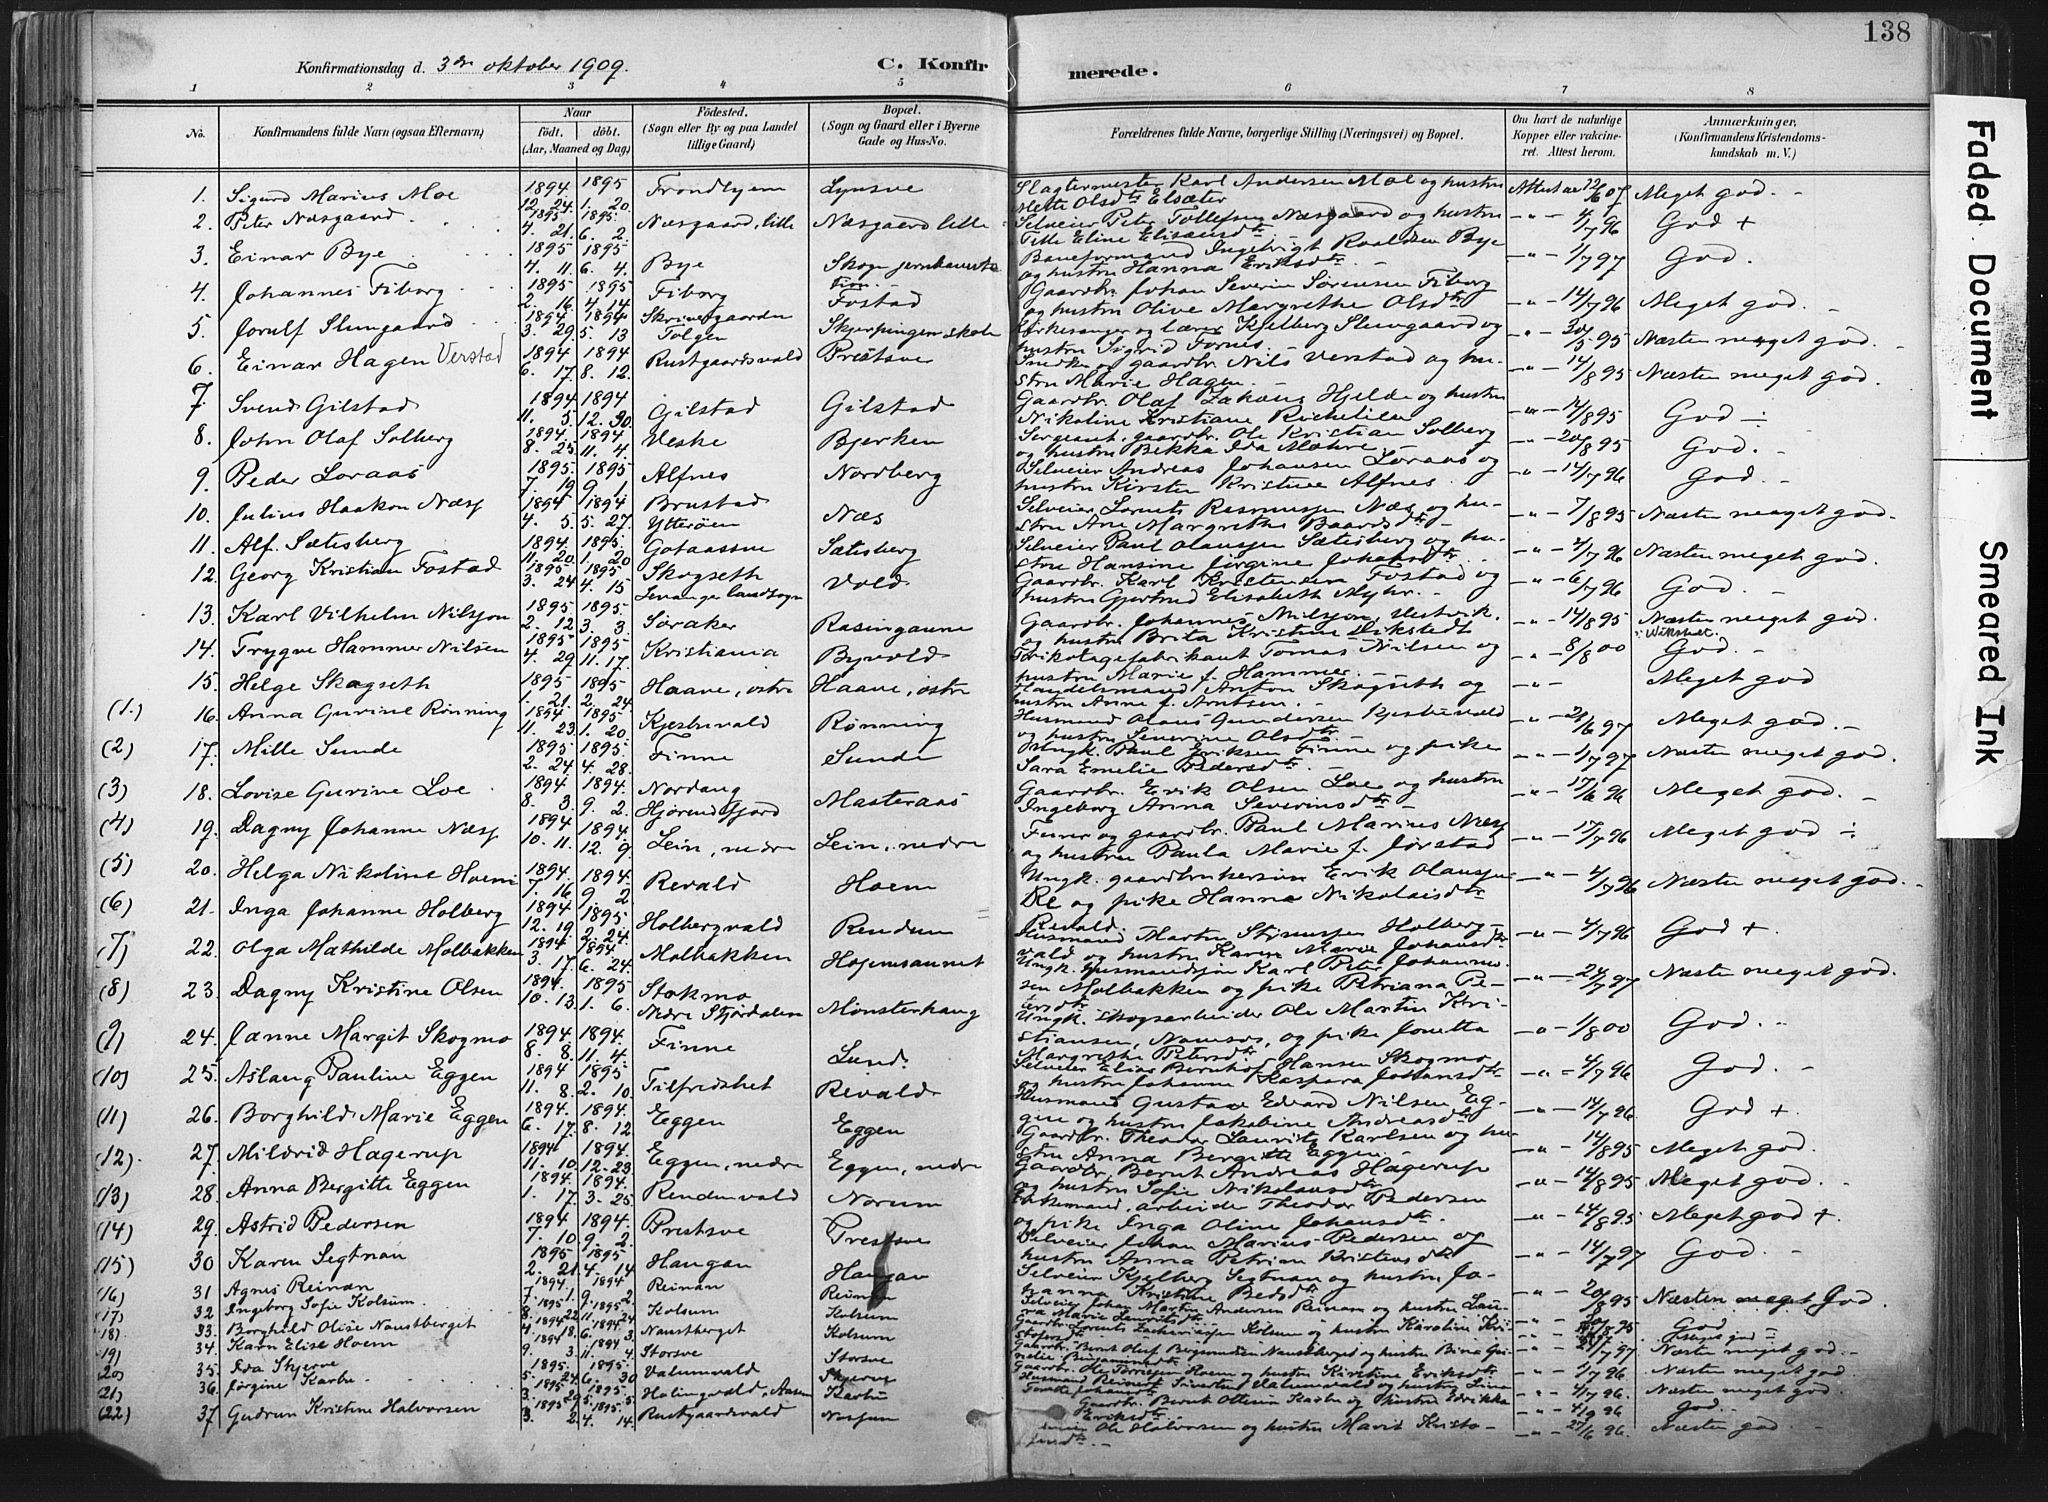 138
Konfirmationsdag d. 3die oktober 1909.
C. Konfirmerede.
1 2 3 4 5 6 7 8
No.
Konfirmandens fulde Navn (ogsaa Efternavn)
Naar
født, døbt.
(Aar, Maaned og Dag)
Fødested.
(Sogn eller By og paa Landet
tillige Gaard)
Bopæl.
(Sogn og Gaard eller i Byerne
Gade og Hus-No.
Forældrenes fulde Navne, borgerlige Stilling (Næringsvei) og Bopæl.
Om havt de naturlige
Kopper eller vakcine-
ret. Attest herom.
Anmærkninger,
(Konfirmandens Kristendoms-
kundskab m. V.)
1. Sigurd Marius Moe 1894 12. 24. 1895 1. 20. Trondhjem Lynsve Slagtermester Karl Andersen Moe og hustru Mette Olsdtr Elsæter Meget god.
2. Peter Næsgaard 1895 4. 21. 1895 6. 2. Næsgaard, lille Næsgaard lille Selveier Peter Tollefsen Næsgaard og hustru 4/7 96 God +
3. Einar Bye 1895 4. 11. 1895 6. 4. Bye Skogn jernbanest. Baneformand Ingebrigt Roaldsen Bye og hustru Hanna Eriksdtr. 1/7 97 God.
4. Johannes Fiborg 1895 2. 16. 1895 4. 14. Fiborg Fostad Gaardbr. Johan Severin Sørensen Fiborg og hustru Olive Margrethe Olsdtr 14/7 96 Meget god.
5. Jorulf Slungaard 1894 3. 29. 1894 5. 13 Tolgen Skjerpingen skole Kirkesanger og lærer Kjelberg Slungaard og hustru Sigrid Fornes. 30/5 95 Næsten meget god.
6. Einar Hagen Verstad 1894 6. 17. 1894 8. 12. Rustgaardsvald Prestsve Snedker og gaardbr. Nils Verstad og hustru Marie Hagen. 14/8 95 Næsten meget god.
7 Svend Gilstad 1894 11. 5. 1894 12. 30. Gilstad Gilstad Gaardbr. Olaf Zakarias Hjelde og hustru Nikoline Kristiane 14/8 95 God
8. John Olaf Solberg 1894 8. 25. 1894 11. 4. Veske Bjerken Sergeant, gaardbr. Ole Kristian Solberg og hustru Bekka Ida Mæhre. 20/8 95 God.
9. Peder Loraas 1895 7. 19 1895 9. 1. Alfnes Nordberg Selveier Andreas Johansen Loraas og hustru Kirsten Kristine Alfnes. 14/7 96 God.
10. Julius Haakon Næss 1894 4. 5. 1894 5. 27. Brustad Ytterøen Næs Selveier Lorents Rasmussen Næs og hustru Ane Margrethe Baardsdtr 7/8 95 Næsten meget god.
11. Alf. Sætisberg 1894. 11. 20. 1895 1. 20 Gotaassve Sætisberg Selveier Paul Olaussen Sætesberg og hustru Hansine Jørgine Johansdtr. 4/7 96 Næsten meget god.
12. Georg Kristian Fostad 1895 3. 24 1895 4. 15 Skogseth Levanger landsogn Vold Gaardbr. Karl Kristensen Fostad og hustru Gjertrud Elisabeth Myhr. 6/7 96 God.
13. Karl Vilhelm Nilsson 1895 2. 12 1895 3. 3. Søraker Rasingaune Gaardbr. Johannes Nilsson og hustru Brita Kristine Wikstedt 14/8 95 Næsten meget god.
14. Trygve Hammer Nilsen 1895 4. 29 1895 11. 17. Kristiania Byvold Trikotagefabrikant Tomas Nilsen og hustru Marie f. Hammer. 8/8 00 God.
15. Helge Skogseth 1895 1. 21. 1895 2. 24. Haave, østre Haave, østre Handelsmand Anton Skogseth og hustru Anne f. Arntsen. Meget god
(1.) 16. Anna Gurine Rønning 1894 11. 23. 1895 1. 20. Kjesbuvald Rønning Husmand Olaus Gundersen Kjesbuvald og hustru Severine Olsdtr. 21/6 97 Meget god.
(2) 17. Mille Sunde 1895 2. 24. 1895 4. 28. Finne Sunde Ungk. Paul Eriksen Finne og pike Sara Emelie Pedersdtr. 1/7 97 Næsten meget god.
(3) 18. Lovise Gurine Loe 1894 8. 3. 1894. 9. 2. Nordang Hjørendfjord Masteraas Gaardbr. Erik Olsen Loe og hustru Ingeborg Anna Severinsdtr 17/6 96 Meget god.
(4) 19. Dagny Johanne Næss 1894 10. 11. 1894. 12. 9. Lein, nedre Lein, nedre og gaardbr. Paul Marius Næss og hustru Paula Marie f. Jørstad 17/7 96 Meget god
(5) 20. Helga Nikoline Hoem 1894 7. 16 1894. 9. 2 Revald Hoem Ungk. gaardbrukersøn Erik Olaussen Re og pike Hanna Nikolaisdtr Revald. 4/7 96 Næsten meget god.
(6) 21. Inga Johanne Holberg 1894 12. 19 1895 2. 24. Holbergvald Rendum Husmand Martin Holbergvald og hustru Karen Marie Johansdtr 4/7 96 God +
(7) 22. Olga Mathilde Molbakken 1894 3. 17. 1894 6. 24. Molbakken Hojemsaunet Ungk. husmandssøn Karl Peter Johannesen Molbakken og pike Petriana Petersdtr 24/7 97 Næsten meget god.
(8) 23. Dagny Kristine Olsen 1894. 10. 13. 1895 1. 6. Stokmo Nedre Stjørdalen Mønsterhaug Ungk. skogsarbeider Ole Martin Kristiansen, Namsos, og pike Jonetta Margrethe Petersdtr 1/8 00 God.
(9) 24. Janne Margit Skogmo 1894. 8. 8. 1894. 11. 4. Finne Lund. Selveier Elias Bernhof Hansen Skogmo og hustru Johanne Kaspara Johansdtr 4/7 96 God.
(10) 25. Aslaug Pauline Eggen 1894 11. 8. 1895 2. 10. Tilfredshet Revald Husmand Gustav Edvard Nilsen Eggen og hustru Jakobine Andreasdtr 14/7 96 God +
(11) 26. Borghild Marie Eggen 1894. 6. 17. 1894. 8. 12 Eggen Eggen Gaardbr. Theodor Lauritz Karlsen og hustru Anna Bergitte Eggen. 14/8 95 Meget god.
(12) 27. Mildrid Hagerup 1894 11. 10. 1894. 12. 23. Eggen, nedre Eggen, nedre Gaardbr. Bernt Andreas Hagerup og hustru Sofie Nikolausdtr 14/8 95 Meget god.
(13) 28. Anna Bergitte Eggen 1894 1. 17. 1894. 3. 25. Rendumvald Norum arbeider Theodor Pedersen og pike Inga Oline Johansdtr. 14/8 95 Meget god +.
(14) 29. Astrid Pedersen 1894 7. 10 1894. 9. 2. Prestsve Prestsve Selveier Johan Marius Pedersen og hustru Anna Petrine Kristensdtr 14/7 97 God.
(15) 30 Karen Segtnan 1895 2. 21. 1895 4. 14 Hangan Hangan Selveier Kjelberg Segtnan og hustru Johanna Kristine 20/8 95 Næsten meget god.
(16) 31 Agnes Reinan 1894 7. 1. 1894 9. 2. Reinan Reinan Selveier Johan Martin Andersen Reinan og hustru Laura Marie Lauritsdtr. God
(17) 32 Ingeborg Sofie Kolsum 1895 1895 Kolsum Kolsum Gaardbr. Lorents Zachariassen Kolsum og hustru Karoline Kristofersdtr
(18) 33. Borghild Olise Naustberget 1894 Naustberget Kolsum Gaardbr. Bernt Olaf Naustberget og hustru Næsten meget god.
(19) 34. Karn Elise Hoem 1894 9. 3. 1894 11. 4. Storsve Storsve Gaardbr. Ole Hoem og hustru Kristine Eriksdtr. 1/7 96 Næsten meget god
(20) 35. Ida Skjerve 1895 5. 24 1895 6. 30 Valumvald Skjerve Husmand Valumvald og hustru 4/7 96 Næsten meget god
(21) 36. Jørgine Karbu 1895 3. 29. 1895 5. 5 Holingvald, Aasen Karbu Gaardbr. Bernt Ottesen Karbu og hustru Edrikka Eriksdtr. 4/9 96 God.
(22) 37 Gudrun Kristine Halvorsen 1895 3. 2. 1895. 4. 14. Rustgaardsvald Nossum Ole Halvorsen og hustru Marit 27/6 96. Næsten god
Faded Document
Smeared Ink